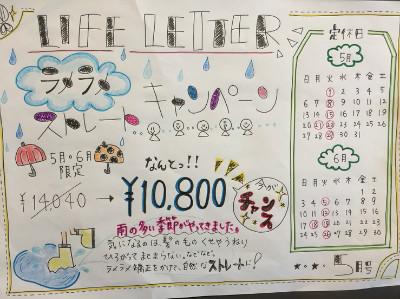 LIFE LETTER
ラメラメ
ストレート
キャンペーン
5月・6月
限定
なんとっ!!
¥14,040 → ¥10,800
今が
チャンス
雨の多い季節がやってきました。
気になるのは、髪のもの くせやうねり
ひろがって まとまらない などなど。
ラメラメ矯正をかけて、自然なストレートに!
定休日
5月
日 月 火 水 木 金 土
1 2 3 4 5
6 7 8 9 10 11 12
13 14 15 16 17 18 19
20 21 22 23 24 25 26
27 28 29 30 31
6月
日 月 火 水 木 金 土
1 2
3 4 5 6 7 8 9
10 11 12 13 14 15 16
17 18 19 20 21 22 23
24 25 26 27 28 29 30
5月号